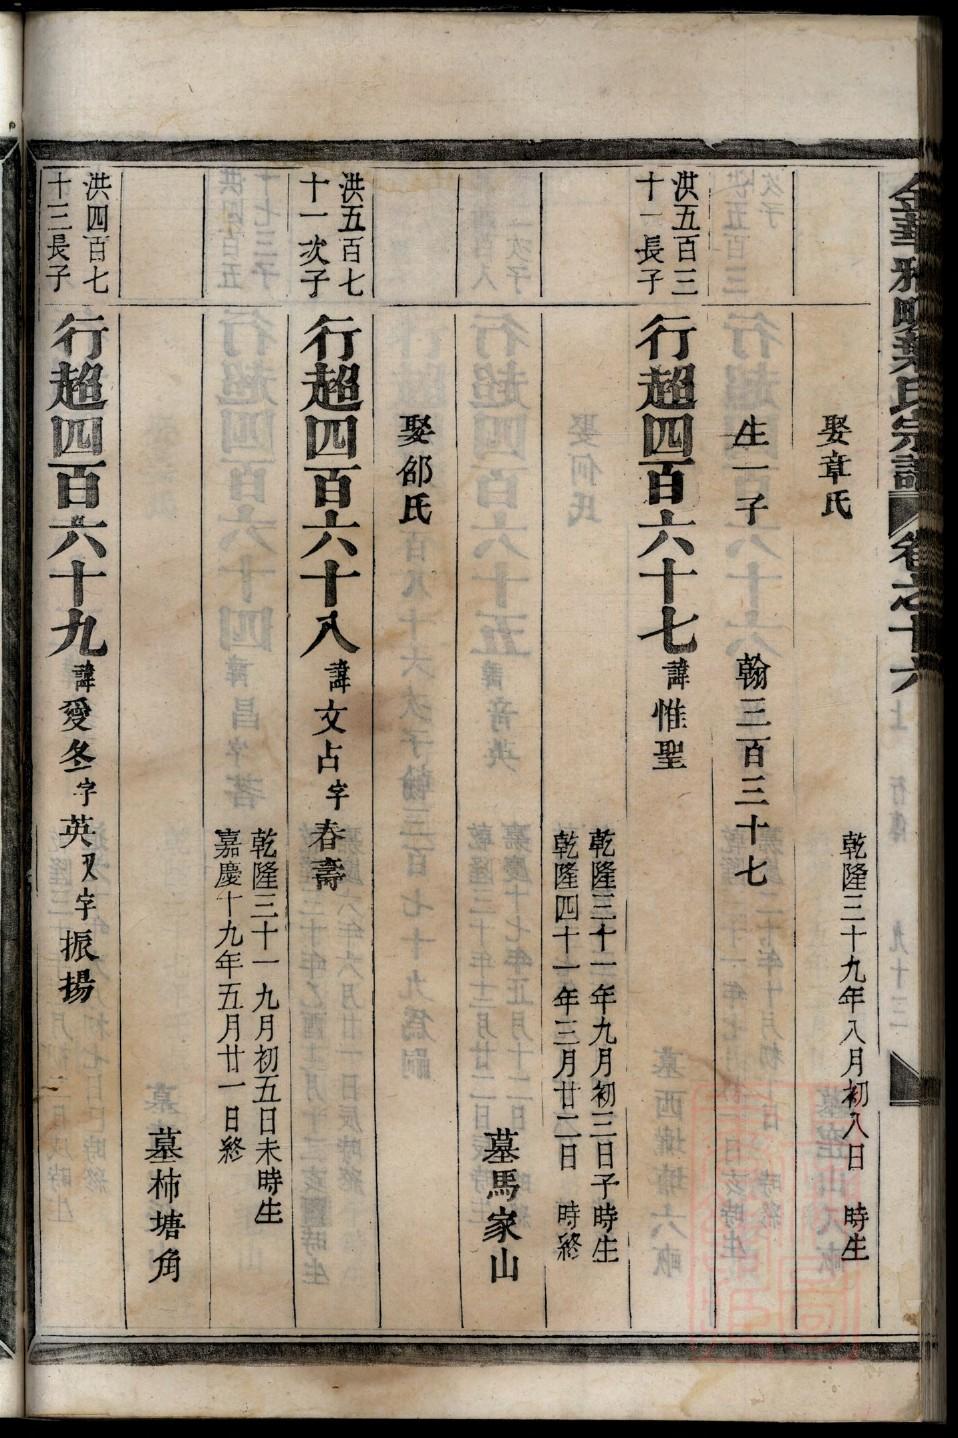 氏宗譜 卷之十六
娶章氏
乾隆三十九年八月初八日 時生
生一子 翰三百三十七
洪五百三
十一長子
行超四百六十七 諱惟聖
乾隆三十一年九月初三日子時生
乾隆四十一年三月廿二日 時終
墓馬家山
娶邵氏
洪五百七
十一次子
行超四百六十八 諱文占字春壽
乾隆三十一 九月初五日未時生
嘉慶十九年五月廿一日終
墓柿塘角
洪四百七
十三長子
行超四百六十九 諱愛冬字英又字振揚